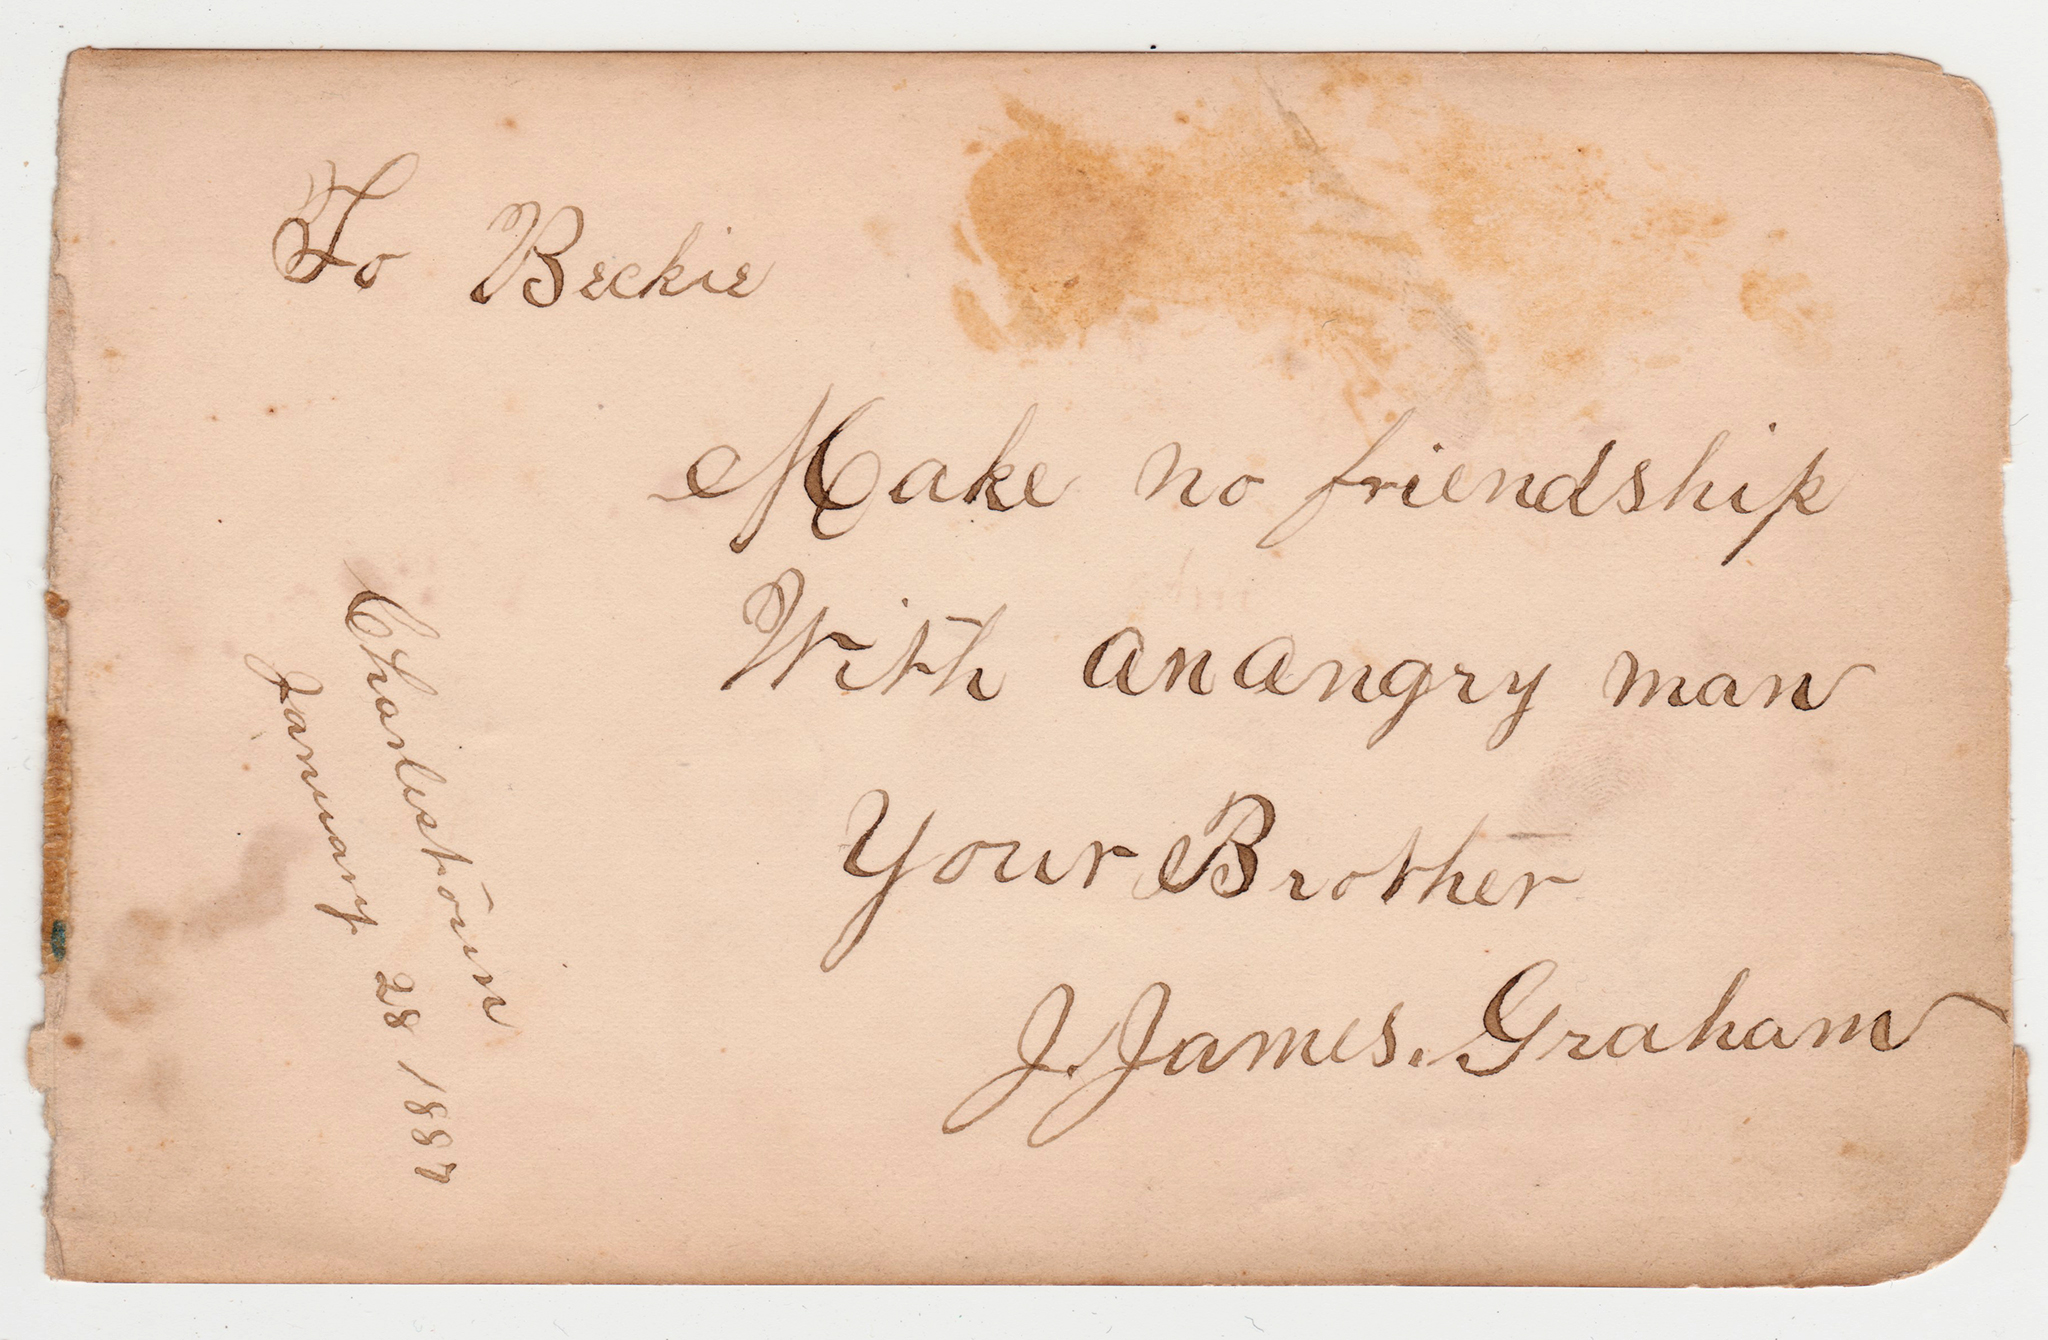 To Beckie
Make no friendship
With an angry man
Your Brother
J. James. Graham
Charlestown
January 28 1887